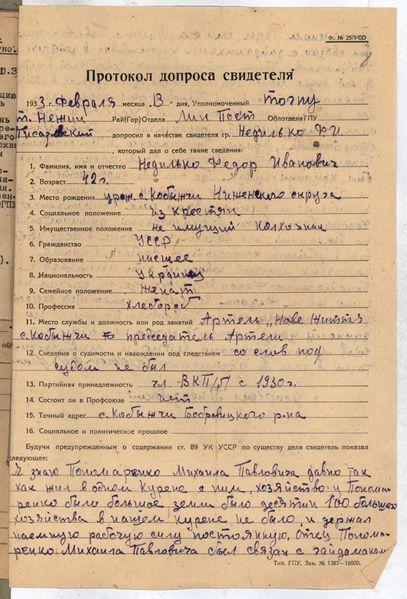 Ф. № 25/УСО
Протокол допроса свидетеля
1933 г. Февраля месяца 13 дня, Уполномоченный ТОГПУ
ст. Нежин Рай(Гор)Отдела Лин Пост Облотдела ГПУ
Писаревский допросил в качестве свидетеля гр. Недилько Ф.И.
который дал о себе такие сведения:
1. Фамилия, имя и отчество Недилько Федор Иванович
2. Возраст 42 г.
3. Место рождения урож. с. Кобыжчи Нежинского округа
4. Социальное положение из крестян
5. Имущественное положение не имущий колхозник
6. Гражданство УССР
7. Образование нисшее
8. Национальность Украинец
9. Семейное положение женат
10. Профессия хлебороб
11. Место службы и должность или род занятий Артель „Нове Життя"
с. Кобыжчи председатель Артели
12. Сведения о судимости и нахождении под следствием со слов под
судом не был
13. Партийная принадлежность чл. ВКП/б/ с 1930 г.
14. Состоит ли в Профсоюзе нет
15. Точный адрес с. Кобыжчи Бобровицкого р-на
16. Социальное и политическое прошлое
Будучи предупрежденным о содержании ст. 89 УК УССР по существу дела свидетель показал
следующее:
Я знаю Пономаренко Михаила Павловича давно так
как жил в одном курене с ним, хозяйство у Поном
аренко было большое земли было десятин 100 большого
хозяйства в нашем курене не было, и держал
наемную рабочую силу постоянную, отец Понома-
ренко Михаила Павловича был связан с гайдамаком
Тип. ГПУ. Зак. № 1387—